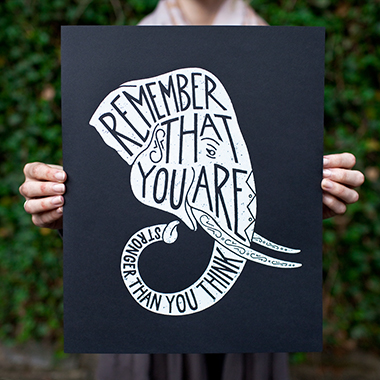 REMEMBER
THAT
YOU ARE
STRONGER THAN YOU THINK